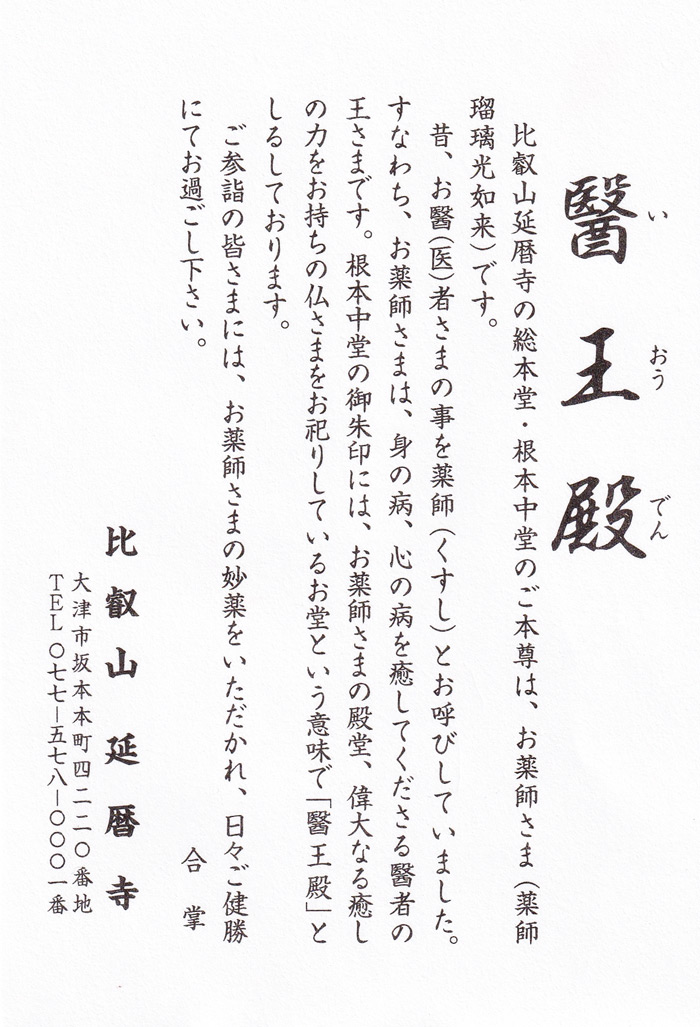 醫王殿
い おう でん
比叡山延暦寺の総本堂・根本中堂のご本尊は、お薬師さま（薬師
瑠璃光如来）です。
昔、お醫（医）者さまの事を薬師（くすし）とお呼びしていました。
すなわち、お薬師さまは、身の病、心の病を癒してくださる醫者の
王さまです。根本中堂の御朱印には、お薬師さまの殿堂、偉大なる癒し
の力をお持ちの仏さまをお祀りしているお堂という意味で「醫王殿」と
しるしております。
ご参詣の皆さまには、お薬師さまの妙薬をいただかれ、日々ご健勝
にてお過ごし下さい。
合掌
比叡山 延暦寺
大津市坂本本町四二二〇番地
TEL 〇七七―五七八―〇〇〇一番